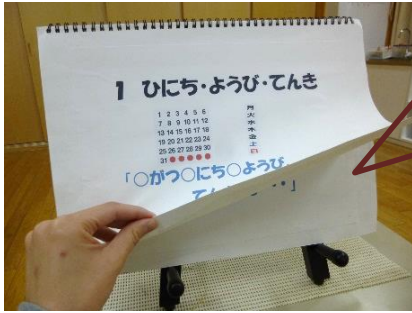 1 ひにち・ようび・てんき
1 2 3 4 5 6
7 8 9 10 11 12
13 14 15 16 17 18
19 20 21 22 23 24
25 26 27 28 29 30
31
月
火
水
木
金
土
日
「○がつ○にち○ようび
て